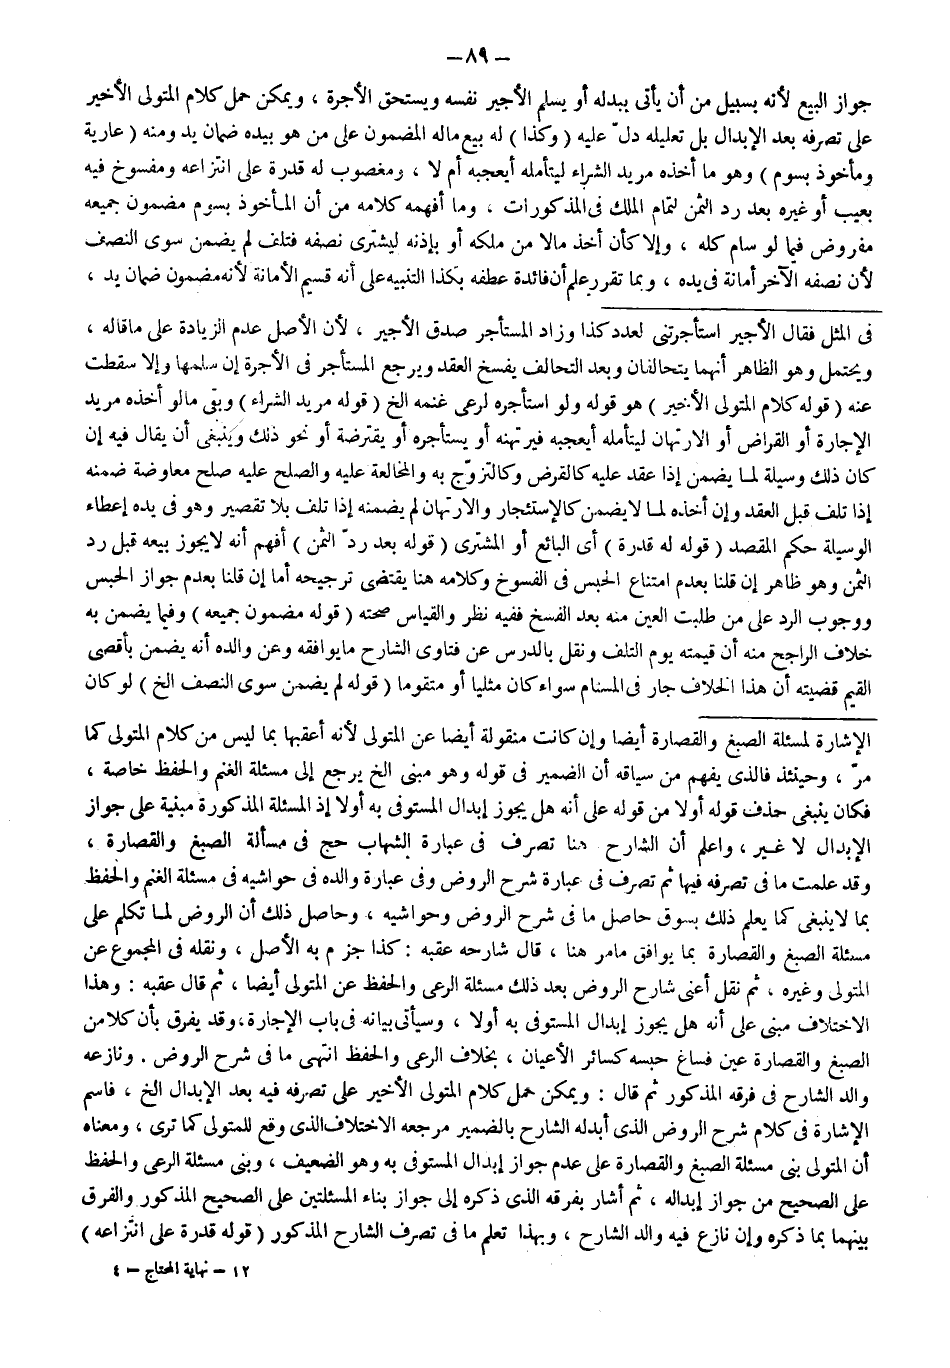 – ٨٩ –
جواز البيع لأنه بسبيل من أن يأتى ببدله أو يسلم الأجير نفسه ويستحق الأجرة ، ويمكن حمل كلام المتولى الأخير
على تصرفه بعد الإبدال بل تعليله دلّ عليه ( وكذا ) له بيع ماله المضمون على من هو بيده ضمان يد ومنه ( عارية
ومأخوذ بسوم ) وهو ما أخذه مريد الشراء ليتأمله أيعجبه أم لا ، ومغصوب له قدرة على انتزاعه ومفسوخ فيه
بعيب أو غيره بعد رد الثمن لتمام الملك فى المذكورات ، وما أفهمه كلامه من أن المأخوذ بسوم مضمون جميعه
مفروض فيما لو سام كله ، وإلا كأن أخذ مالا من ملكه أو بإذنه ليشترى نصفه فتلف لم يضمن سوى النصف
لأن نصفه الآخر أمانة فى يده ، وبما تقرر علم أن فائدة عطفه بكذا التنبيه على أنه قسيم الأمانة لأنه مضمون ضمان يد ،
فى المثل فقال الأجير استأجرتنى لعدد كذا وزاد المستأجر صدق الأجير ، لأن الأصل عدم الزيادة على ماقاله ،
ويحتمل وهو الظاهر أنهما يتحالفان وبعد التحالف يفسخ العقد ويرجع المستأجر فى الأجرة إن سلمها وإلا سقطت
عنه ( قوله كلام المتولى الأخير ) هو قوله ولو استأجره لرعى غنمه الخ ( قوله مريد الشراء ) وبقى مالو أخذه مريد
الإجارة أو القراض أو الارتهان ليتأمله أيعجبه فيرتهنه أو يستأجره أو يقترضة أو نحو ذلك وينبغى أن يقال فيه إن
كان ذلك وسيلة لمـا يضمن إذا عقد عليه كالقرض وكالتزوّج به والمخالعة عليه والصلح عليه صلح معاوضة ضمنه
إذا تلف قبل العقد وإن أخذه لما لايضمن كالإستئجار والارتهان لم يضمنه إذا تلف بلا تقصير وهو فى يده إعطاء
الوسيلة حكم المقصد ( قوله له قدرة ) أى البائع أو المشترى ( قوله بعد ردّ الثمن ) أفهم أنه لايجوز بيعه قبل رد
الثمن وهو ظاهر إن قلنا بعدم امتناع الحبس فى الفسوخ وكلامه هنا يقتضى ترجيحه أما إن قلنا بعدم جواز الحبس
ووجوب الرد على من طلبت العين منه بعد الفسخ ففيه نظر والقياس صحته ( قوله مضمون جميعه ) وفيما يضمن به
خلاف الراجح منه أن قيمته يوم التلف ونقل بالدرس عن فتاوى الشارح مايوافقه وعن والده أنه يضمن بأقصى
القيم قضيته أن هذا الخلاف جار فى المسنام سواء كان مثليا أو متقوما ( قوله لم يضمن سوى النصف الخ ) لو كان
الإشارة لمسئلة الصبغ والقصارة أيضا وإن كانت منقولة أيضا عن المتولى لأنه أعقبها بما ليس من كلام المتولى كما
مرّ ، وحينئذ فالذى يفهم من سياقه أن الضمير فى قوله وهو مبنى الخ يرجع إلى مسئلة الغنم والحفظ خاصة ،
فكان ينبغى حذف قوله أولا من قوله على أنه هل يجوز إبدال المستوفى به أولا إذ المسئلة المذكورة مبنية على جواز
الإبدال لا غير ، واعلم أن الشارح هنا تصرف فى عبارة الشهاب حج فى مسألة الصبغ والقصارة ،
وقد علمت ما فى تصرفه فيها ثم تصرف فى عبارة شرح الروض وفى عبارة والده فى حواشيه فى مسئلة الغنم والحفظ
بما لاينبغى كما يعلم ذلك بسوق حاصل ما فى شرح الروض وحواشيه ، وحاصل ذلك أن الروض لمـا تكلم على
مسئلة الصبغ والقصارة بما يوافق مامر هنا ، قال شارحه عقبه : كذا جزم به الأصل ، ونقله فى المجموع عن
المتولى وغيره ، ثم نقل أعنى شارح الروض بعد ذلك مسئلة الرعى والحفظ عن المتولى أيضا ، ثم قال عقبه : وهذا
الاختلاف مبنى على أنه هل يجوز إبدال المستوفى به أولا ، وسيأتى بيانه فى باب الإجارة،وقد يفرق بأن كلا من
الصبغ والقصارة عين فساغ حبسه كسائر الأعيان ، بخلاف الرعى والحفظ انتهى ما فى شرح الروض . ونازعه
والد الشارح فى فرقه المذكور ثم قال : ويمكن حمل كلام المتولى الأخير على تصرفه فيه بعد الإبدال الخ ، فاسم
الإشارة فى كلام شرح الروض الذى أبدله الشارح بالضمير مرجعه الاختلاف الذى وقع للمتولى كما ترى ، ومعناه
أن المتولى بنى مسئلة الصبغ والقصارة على عدم جواز إبدال المستوفى به وهو الضعيف ، وبنى مسئلة الرعى والحفظ
على الصحيح من جواز إبداله ، ثم أشار بفرقه الذى ذكره إلى جواز بناء المسئلتين على الصحيح المذكور والفرق
بينهما بما ذكره وإن نازع فيه والد الشارح ، وبهذا تعلم ما فى تصرف الشارح المذكور ( قوله قدرة على انتزاعه )
١٢ – نهاية المحتاج – ٤